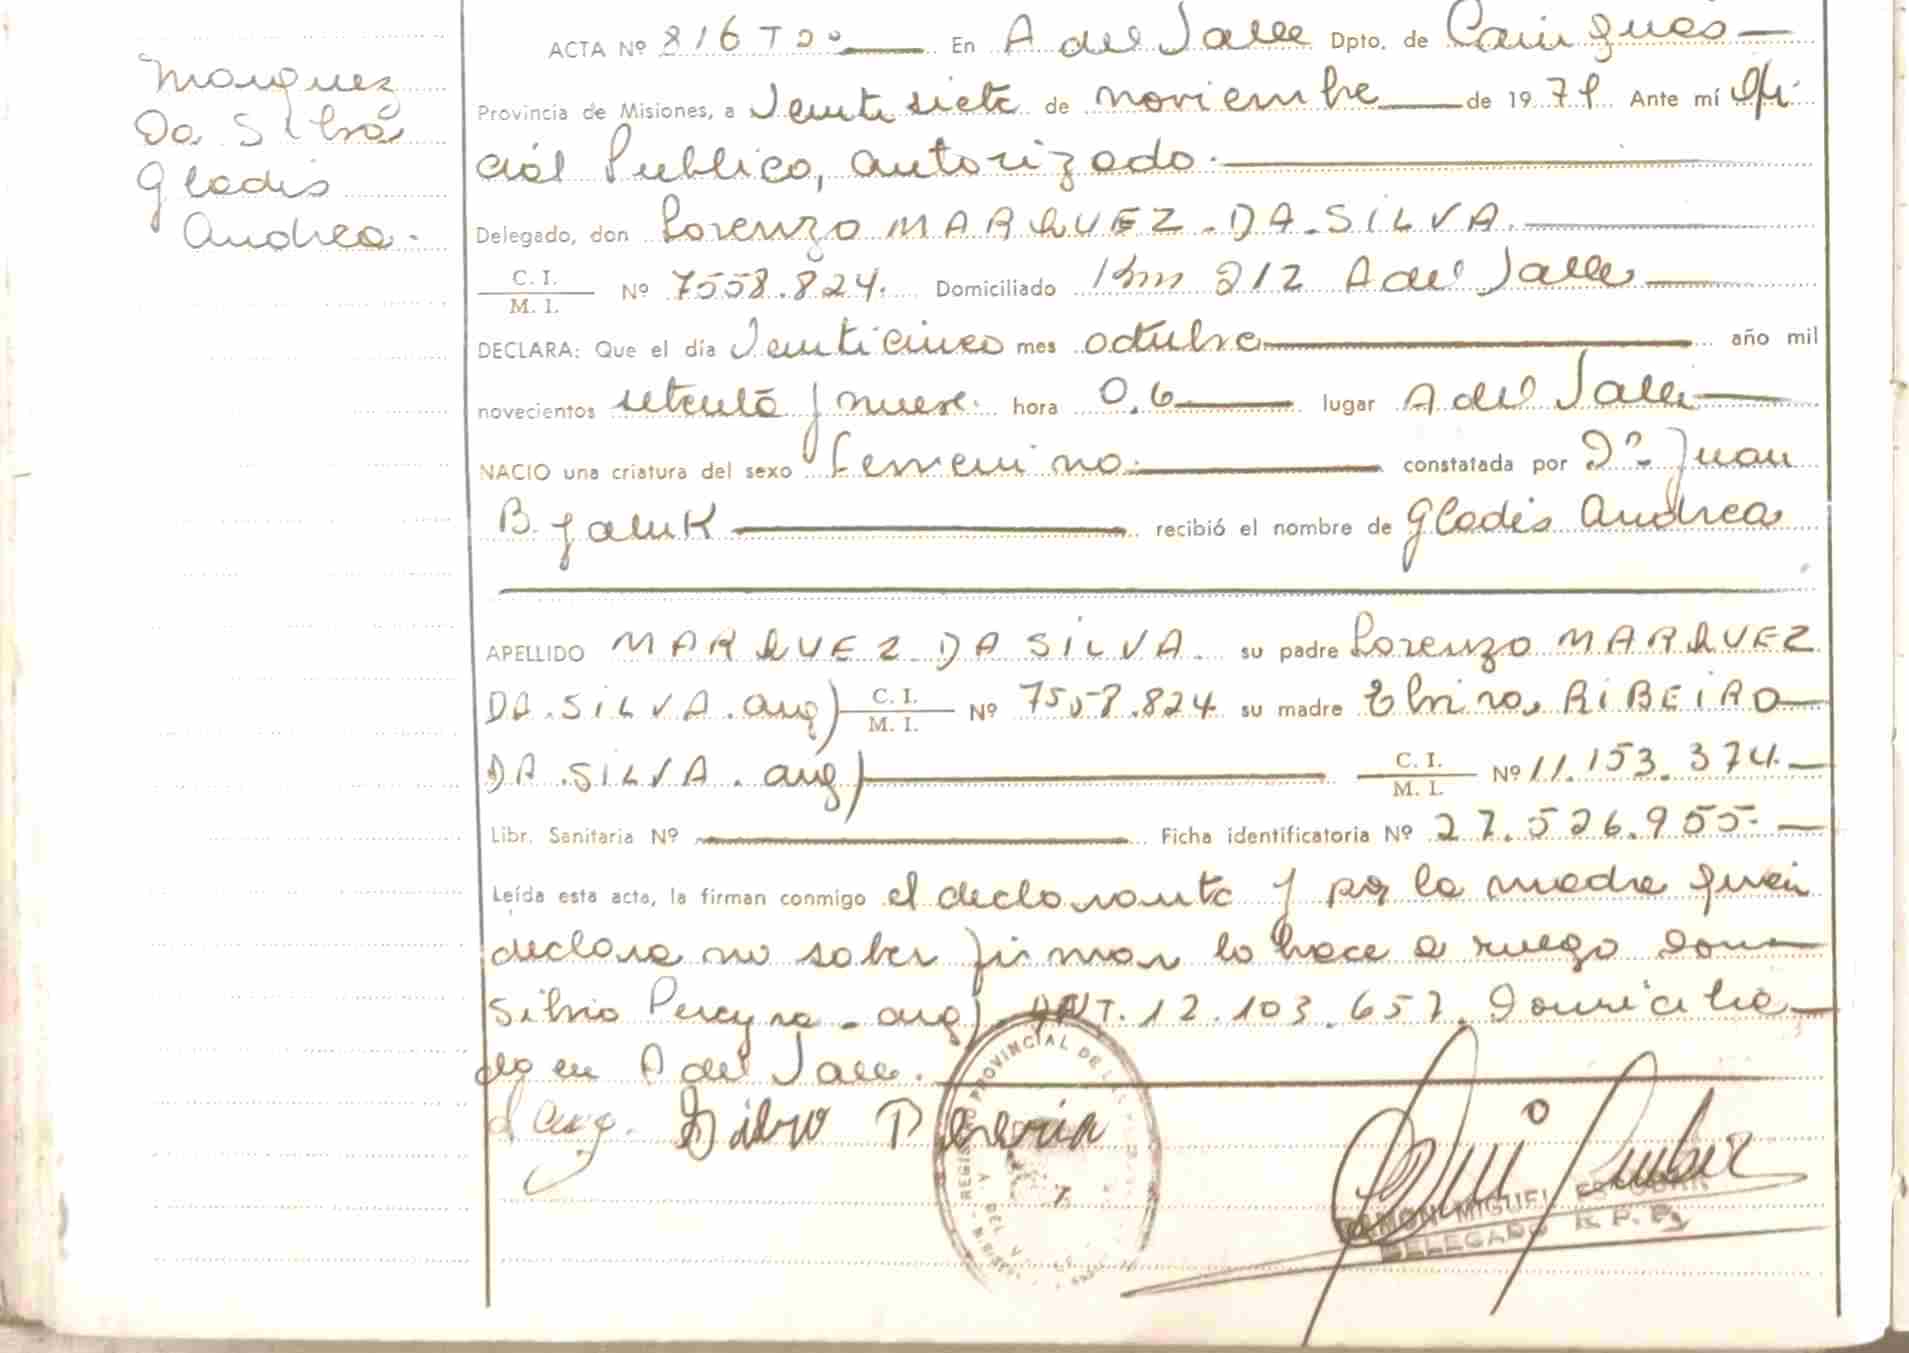 Marquez
Da Silva
Gladis
Andrea.
ACTA Nº 816 Tº En A del Valle Dpto. de Cainguas
Provincia de Misiones, a Veintisiete de noviembre de 1979. Ante mí Ofi
cial Publico, autorizado.
Delegado, don Lorenzo MARQUEZ. DA. SILVA.
C. I. / M. I. Nº 7558.824. Domiciliado Km 212 A del Valle
DECLARA: Que el día Veinticinco mes octubre año mil
novecientos setenta y nueve. hora 0,6 lugar A del Valle
NACIO una criatura del sexo femenino. constatada por Juan
B. recibió el nombre de Gladis Andrea
APELLIDO MARQUEZ DA SILVA. su padre Lorenzo MARQUEZ
DA. SILVA. arg) C. I. / M. I. Nº 7558.824 su madre Elvira RIBEIRO
DA. SILVA. arg) C. I. / M. I. Nº 11.153.374.
Libr. Sanitaria Nº Ficha identificatoria Nº 27.526.955.
Leída esta acta, la firman conmigo el declarante y por la madre quien
declara no saber firmar lo hace a ruego don
Silvio Pereyra - arg) DNI. 12.103.657. Domicilia
do en A del Valle.
Silvio Pereria
REGISTRO PROVINCIAL DE LAS
RAMON MIGUEL ESCOBAR
DELEGADO R. P. P.